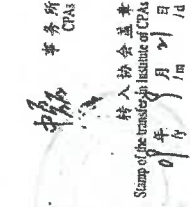 事务所
CPAs
转入协会盖章
Stamp of the transfer-in Institute of CPAs
09年 8月 21日
/y /m /d